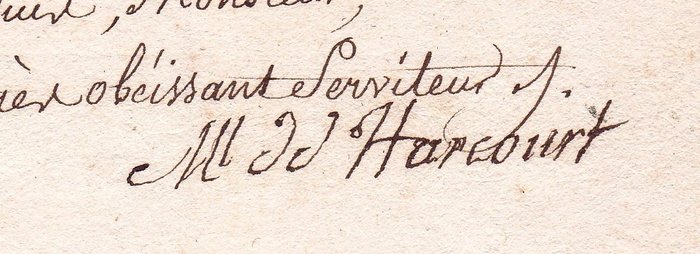 , Monsieur,
très obéissant Serviteur ./.
Ml d'Harcourt